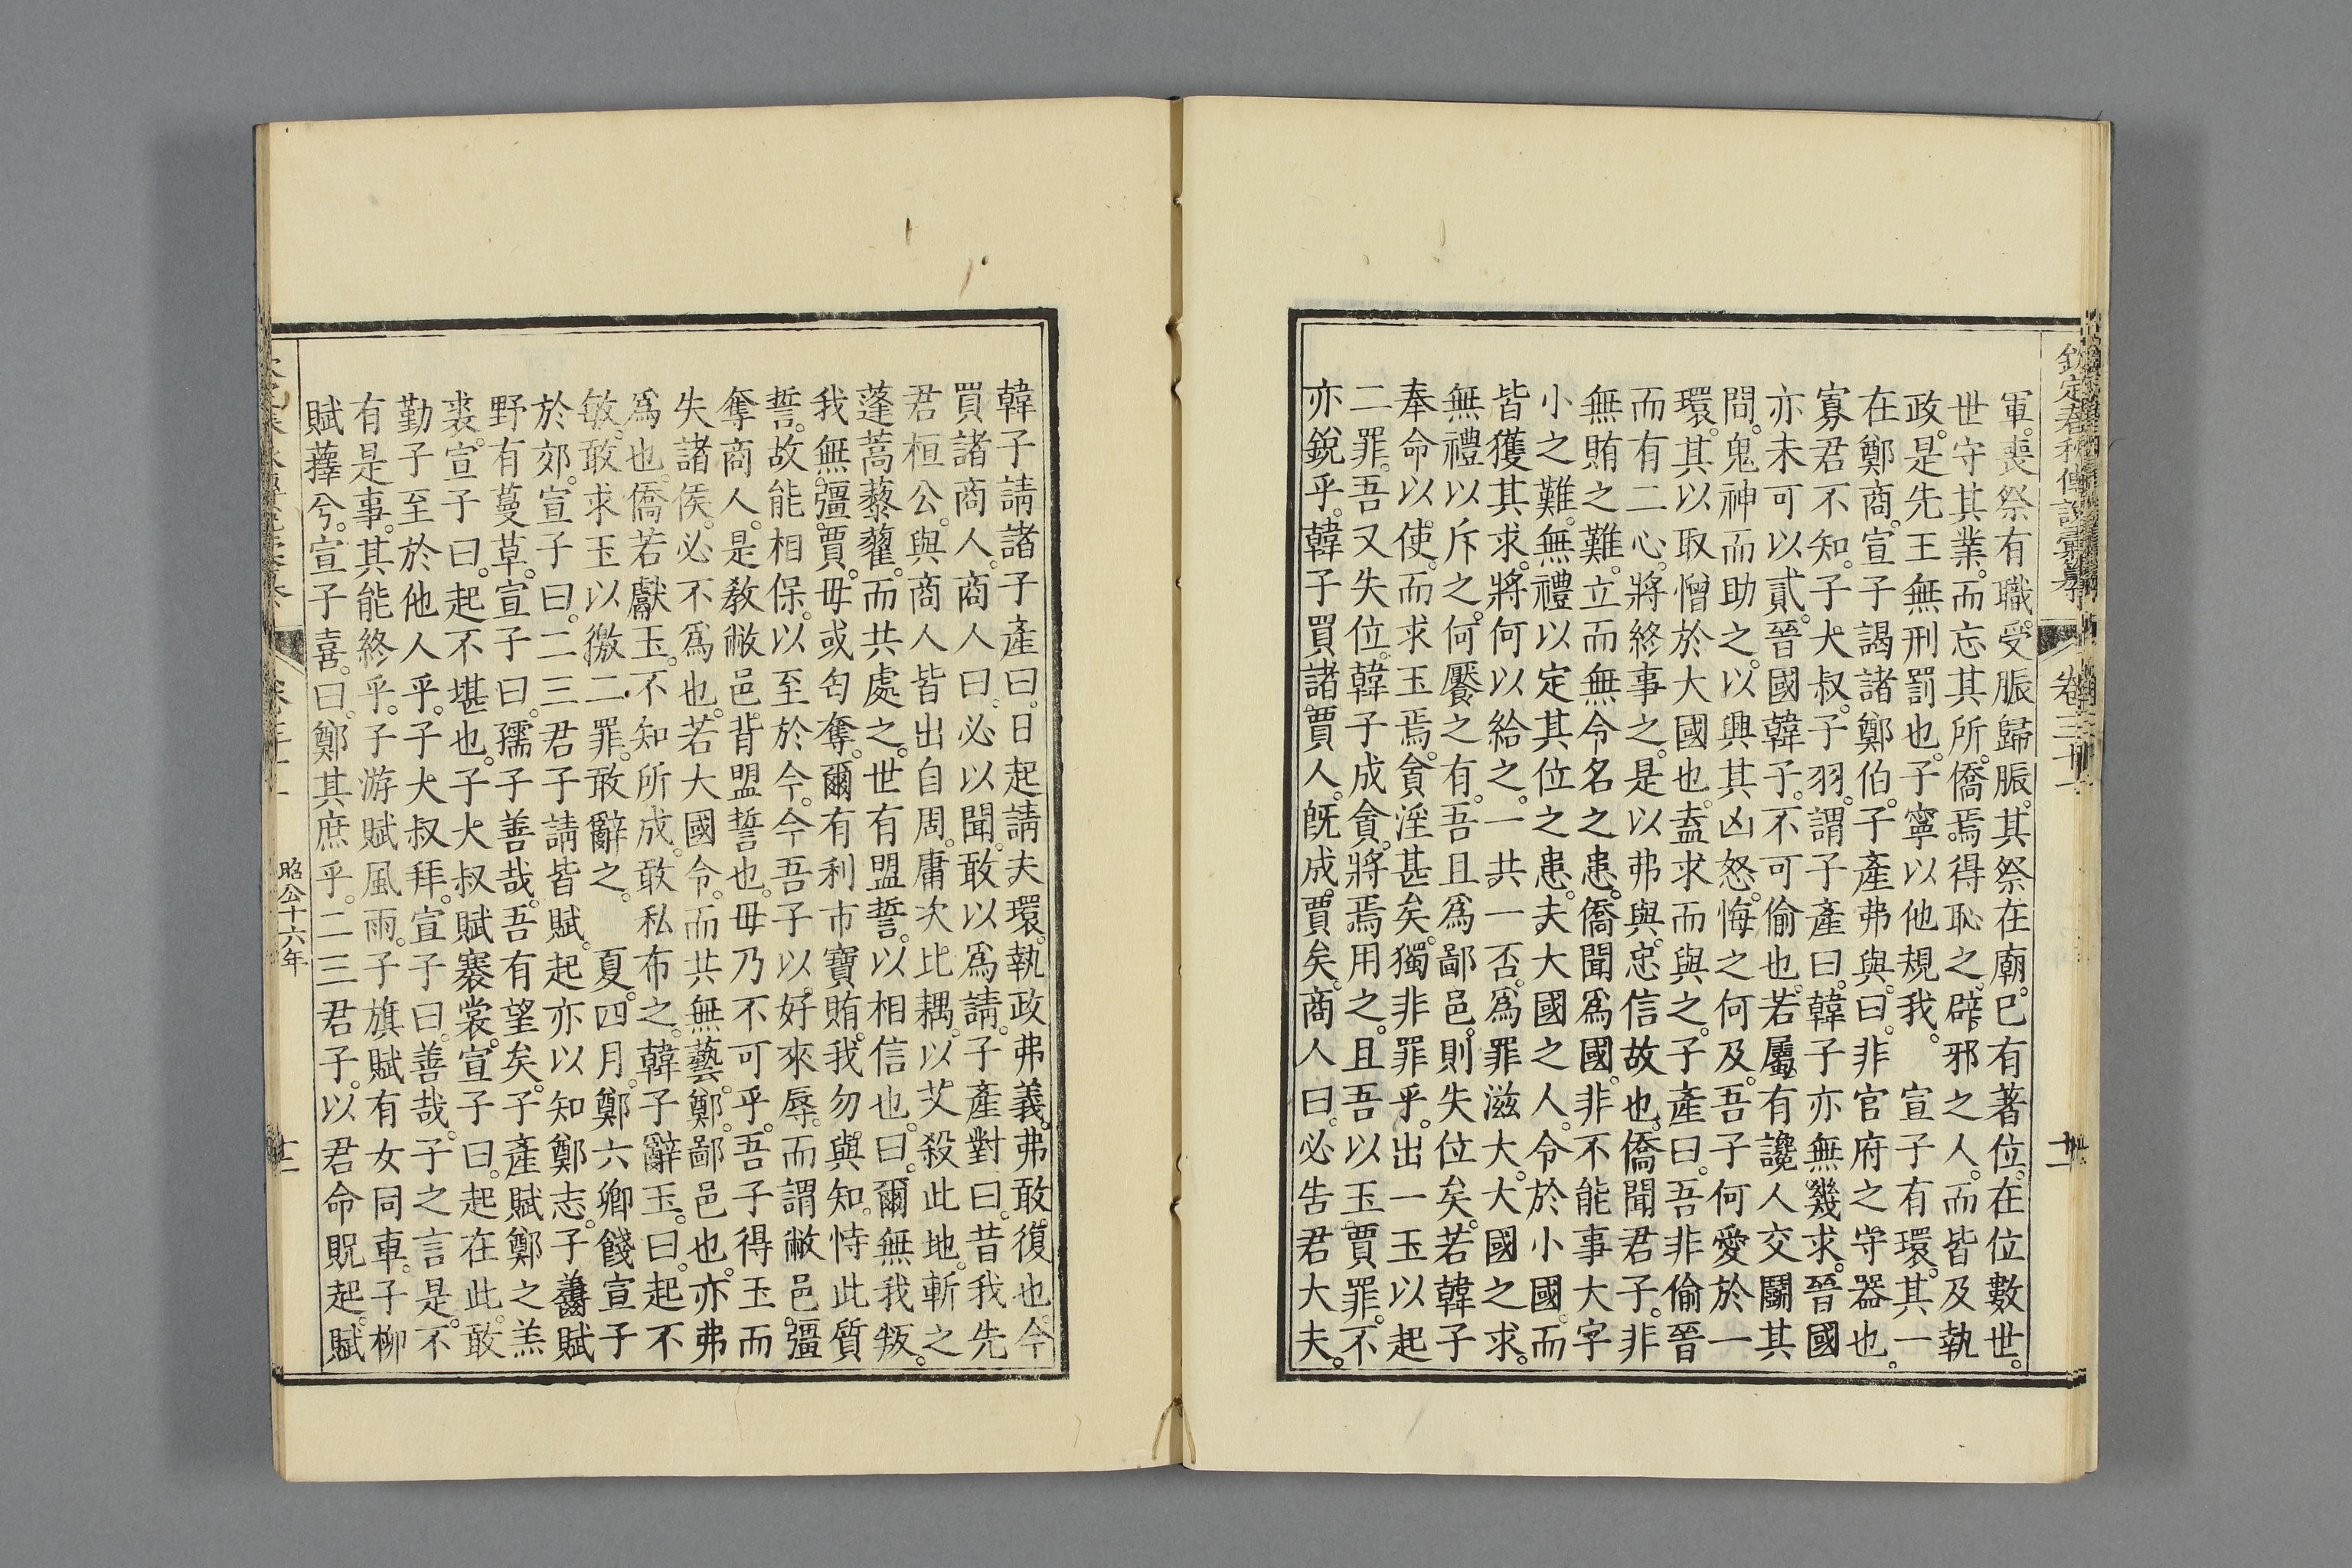 欽定春秋傳說彙纂
卷三十一
軍。喪祭有職。受脤歸脤。其祭在廟。已有著位。在位數世。
世守其業。而忘其所。僑焉得恥之。辟邪之人。而皆及執
政。是先王無刑罰也。子寧以他規我。　宣子有環。其一
在鄭商。宣子謁諸鄭伯。子產弗與。曰。非官府之守器也。
寡君不知。子大叔。子羽。謂子產曰。韓子亦無幾求。晉國
亦未可以貳。晉國韓子。不可偷也。若屬有讒人交鬭其
間。鬼神而助之。以興其凶怒。悔之何及。吾子何愛於一
環。其以取憎於大國也。盍求而與之。子產曰。吾非偷晉
而有二心。將終事之。是以弗與。忠信故也。僑聞君子。非
無賄之難。立而無令名之患。僑聞爲國。非不能事大字
小之難。無禮以定其位之患。夫大國之人。令於小國。而
皆獲其求。將何以給之。一共一否。爲罪滋大。大國之求。
無禮以斥之。何饜之有。吾且爲鄙邑。則失位矣。若韓子
奉命以使。而求玉焉。貪淫甚矣。獨非罪乎。出一玉以起
二罪。吾又失位。韓子成貪。將焉用之。且吾以玉賈罪。不
亦銳乎。韓子買諸賈人。旣成賈矣。商人曰。必告君大夫。
韓子請諸子產曰。日起請夫環。執政弗義。弗敢復也。今
買諸商人。商人曰。必以聞。敢以爲請。子產對曰。昔我先
君桓公。與商人皆出自周。庸次比耦。以艾殺此地。斬之
蓬蒿藜藋。而共處之。世有盟誓。以相信也。曰。爾無我叛。
我無彊賈。毋或匄奪。爾有利市寶賄。我勿與知。恃此質
誓。故能相保。以至於今。今吾子以好來辱。而謂敝邑彊
奪商人。是敎敝邑背盟誓也。毋乃不可乎。吾子得玉而
失諸侯。必不爲也。若大國令。而共無藝。鄭鄙邑也。亦弗
爲也。僑若獻玉。不知所成。敢私布之。韓子辭玉。曰。起不
敏。敢求玉以徼二罪。敢辭之。　夏。四月。鄭六卿餞宣子
於郊。宣子曰。二三君子請皆賦。起亦以知鄭志。子齹賦
野有蔓草。宣子曰。孺子善哉。吾有望矣。子產賦鄭之羔
裘。宣子曰。起不堪也。子大叔賦褰裳。宣子曰。起在此。敢
勤子至於他人乎。子大叔拜。宣子曰。善哉。子之言是。不
有是事。其能終乎。子游賦風雨。子旗賦有女同車。子柳
賦蘀兮。宣子喜。曰。鄭其庶乎。二三君子。以君命貺起。賦
昭公十六年